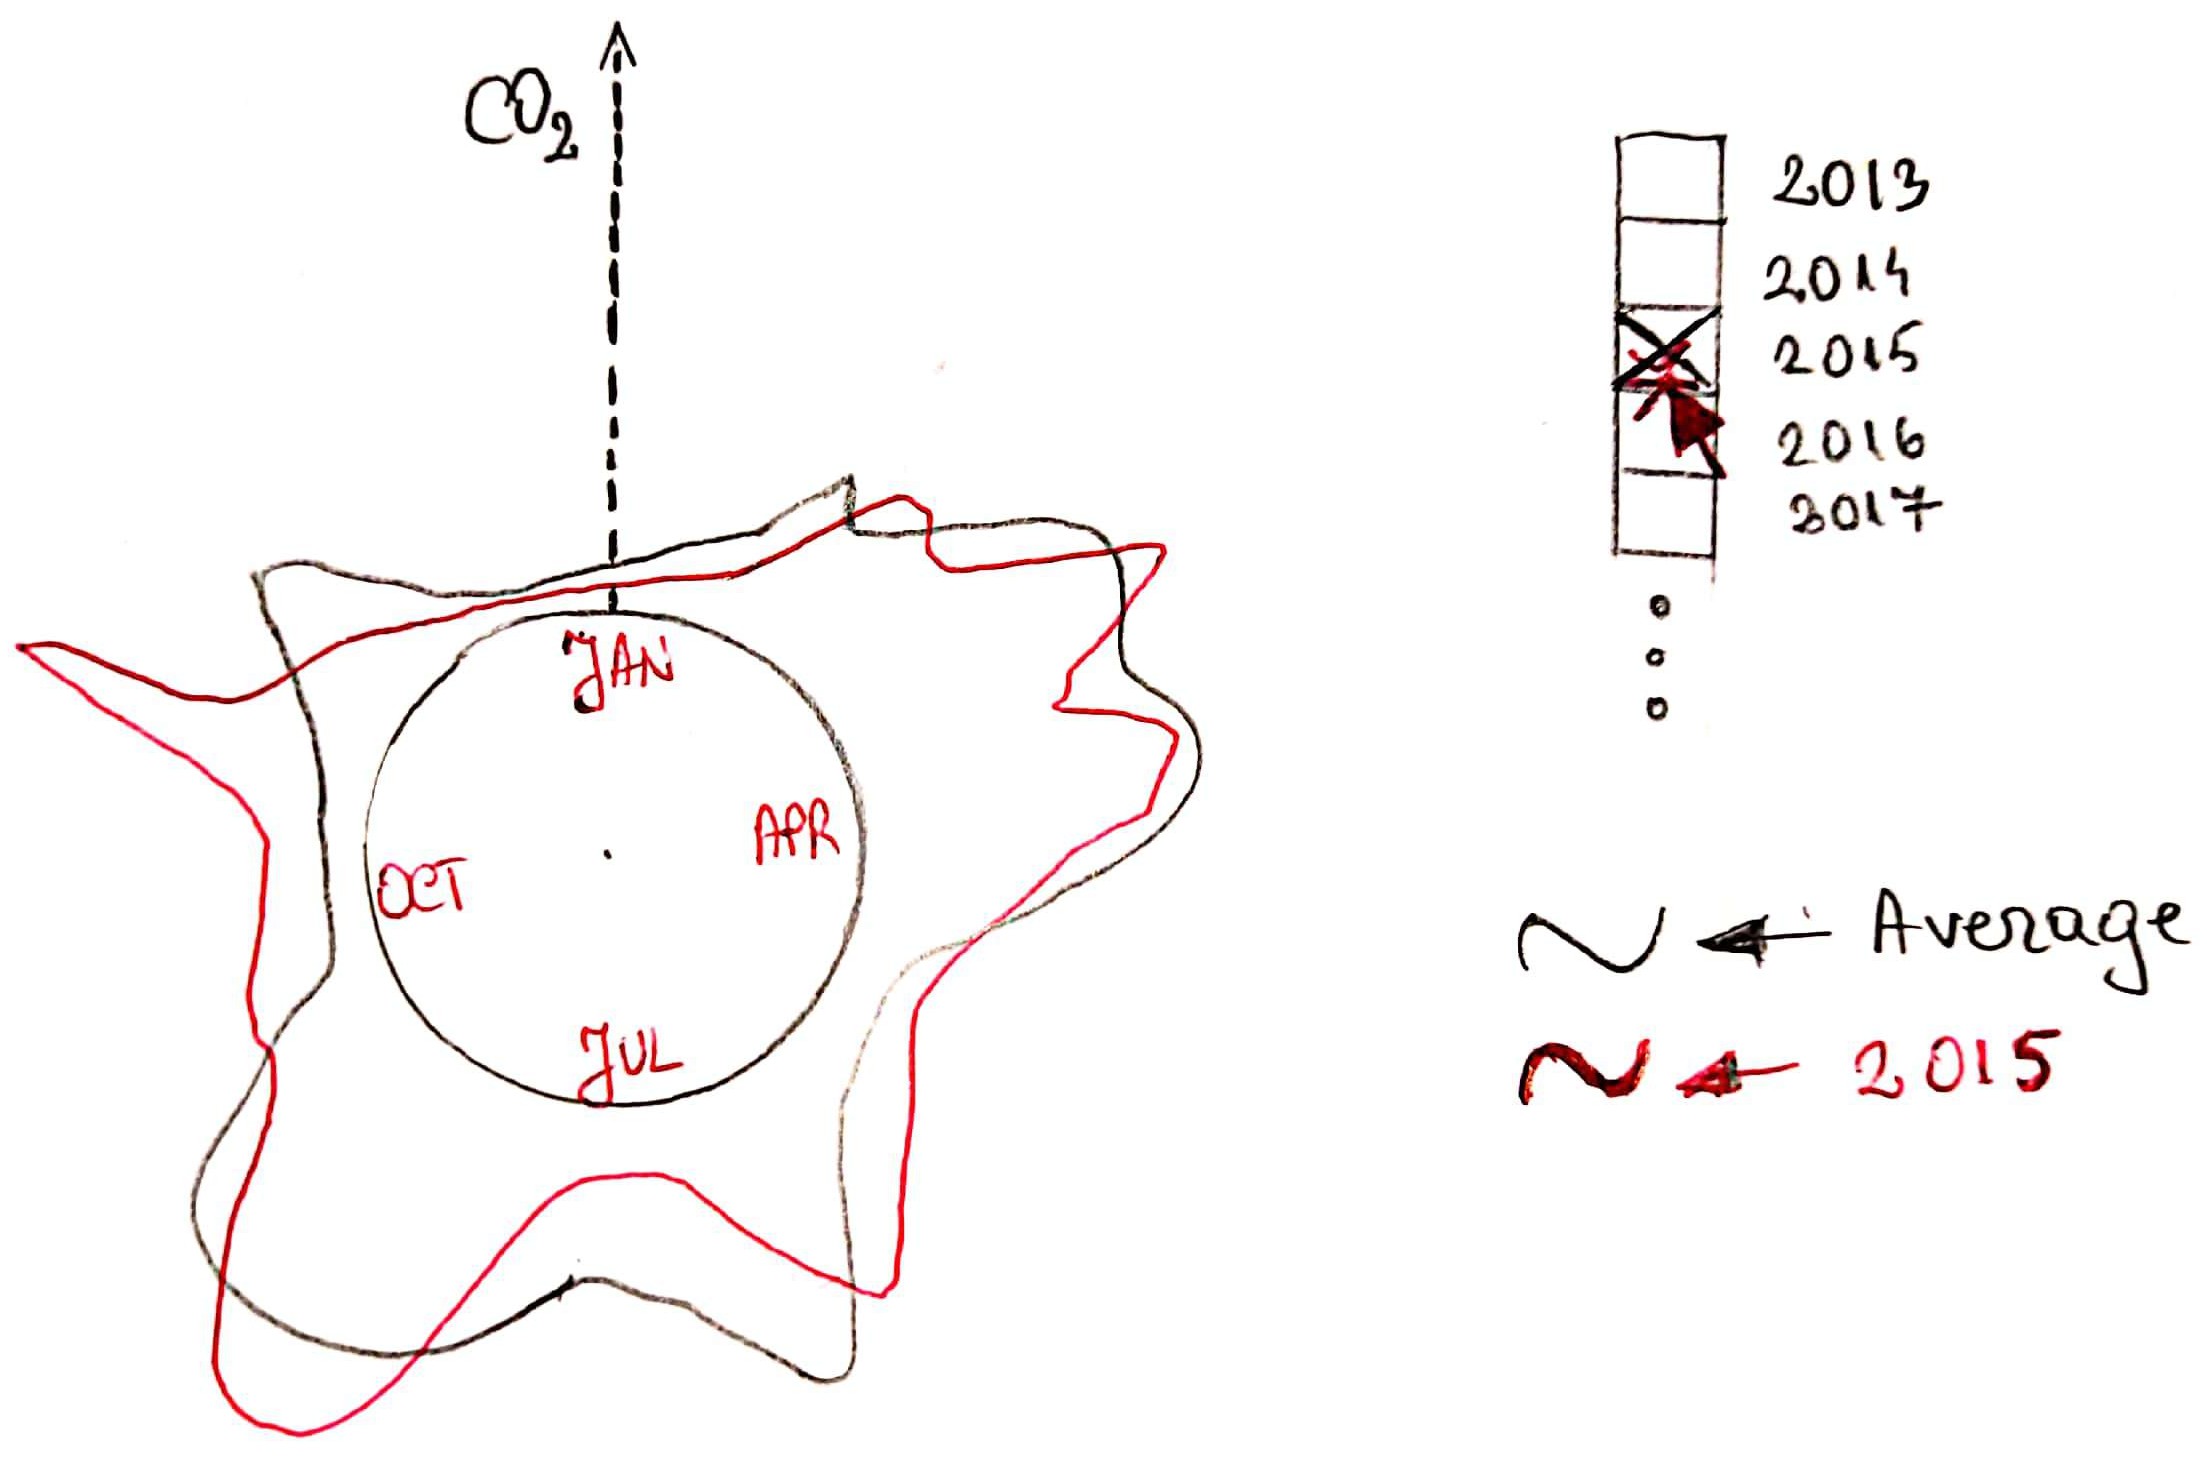 CO2
JAN
APR
OCT
JUL
2013
2014
2015
2016
2017
Average
2015